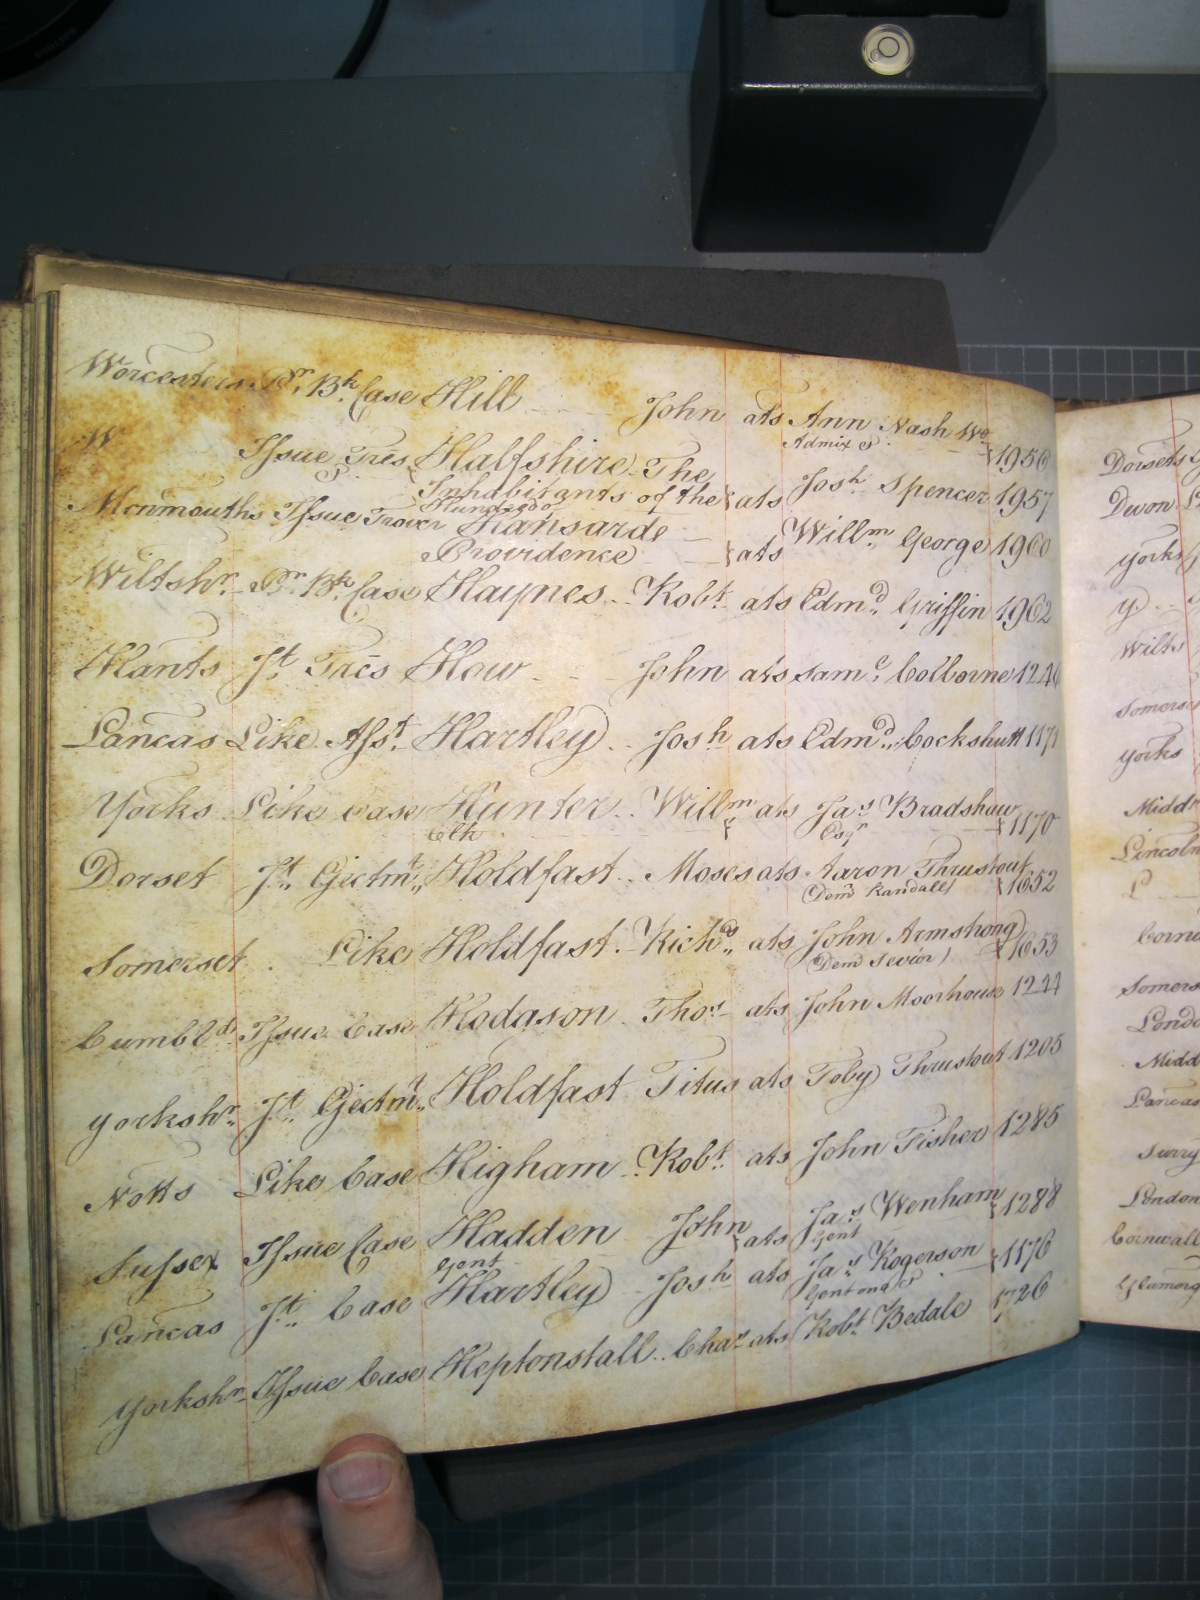 Worcesters Pr. Bk. Case Hill John ats Ann Nash Wo 1956
Admix &
W Issue Tres Halfshire The
Inhabitants of the ats Josh Spencer 1957
Hundred of
Monmouths Issue Trover Hansarde
Providence ats Willm George 1960
Wiltshr. Pr. Bk. Case Haynes Robt. ats Edmd. Griffin 1962
Hants Jt. Tres How John ats Saml. Colborne
Lancas Like Asst. Hartley Josh ats Edmd. Cockshutt 1171
Yorks Like Case Hunter Willm ats Jas. Bradshaw
Clk Esqr 1170
Dorset Jt. Ejectmt. Holdfast Moses ats Aaron Thrustout
(Dem Randall) 1652
Somerset Like Holdfast Richd. ats John Armstrong
(Dem Sevior) 1653
Cumbld. Issue Case Hodgson Thos. ats John Moorhouse 1244
Yorkshr. Jt. Ejectmt. Holdfast Titus ats Toby Thrustout 1205
Notts Like Case Higham Robt. ats John Fisher 1285
Sussex Issue Case Hadden John ats Jas. Wenham 1288
Gent Gent
Lancas Jt. Case Hartley Josh ats Jas. Rogerson 1176
Gent one &
Yorkshr. Issue Case Heptonstall Chas. ats Robt. Bedale 1726
Dorsets
Devon
Yorks
Y
Wilts
Somers
Yorks
Middr
Lincoln
L
Cornw
Somers
Londo
Midd
Lancas
Surry
London
Cornwall
Glamorg